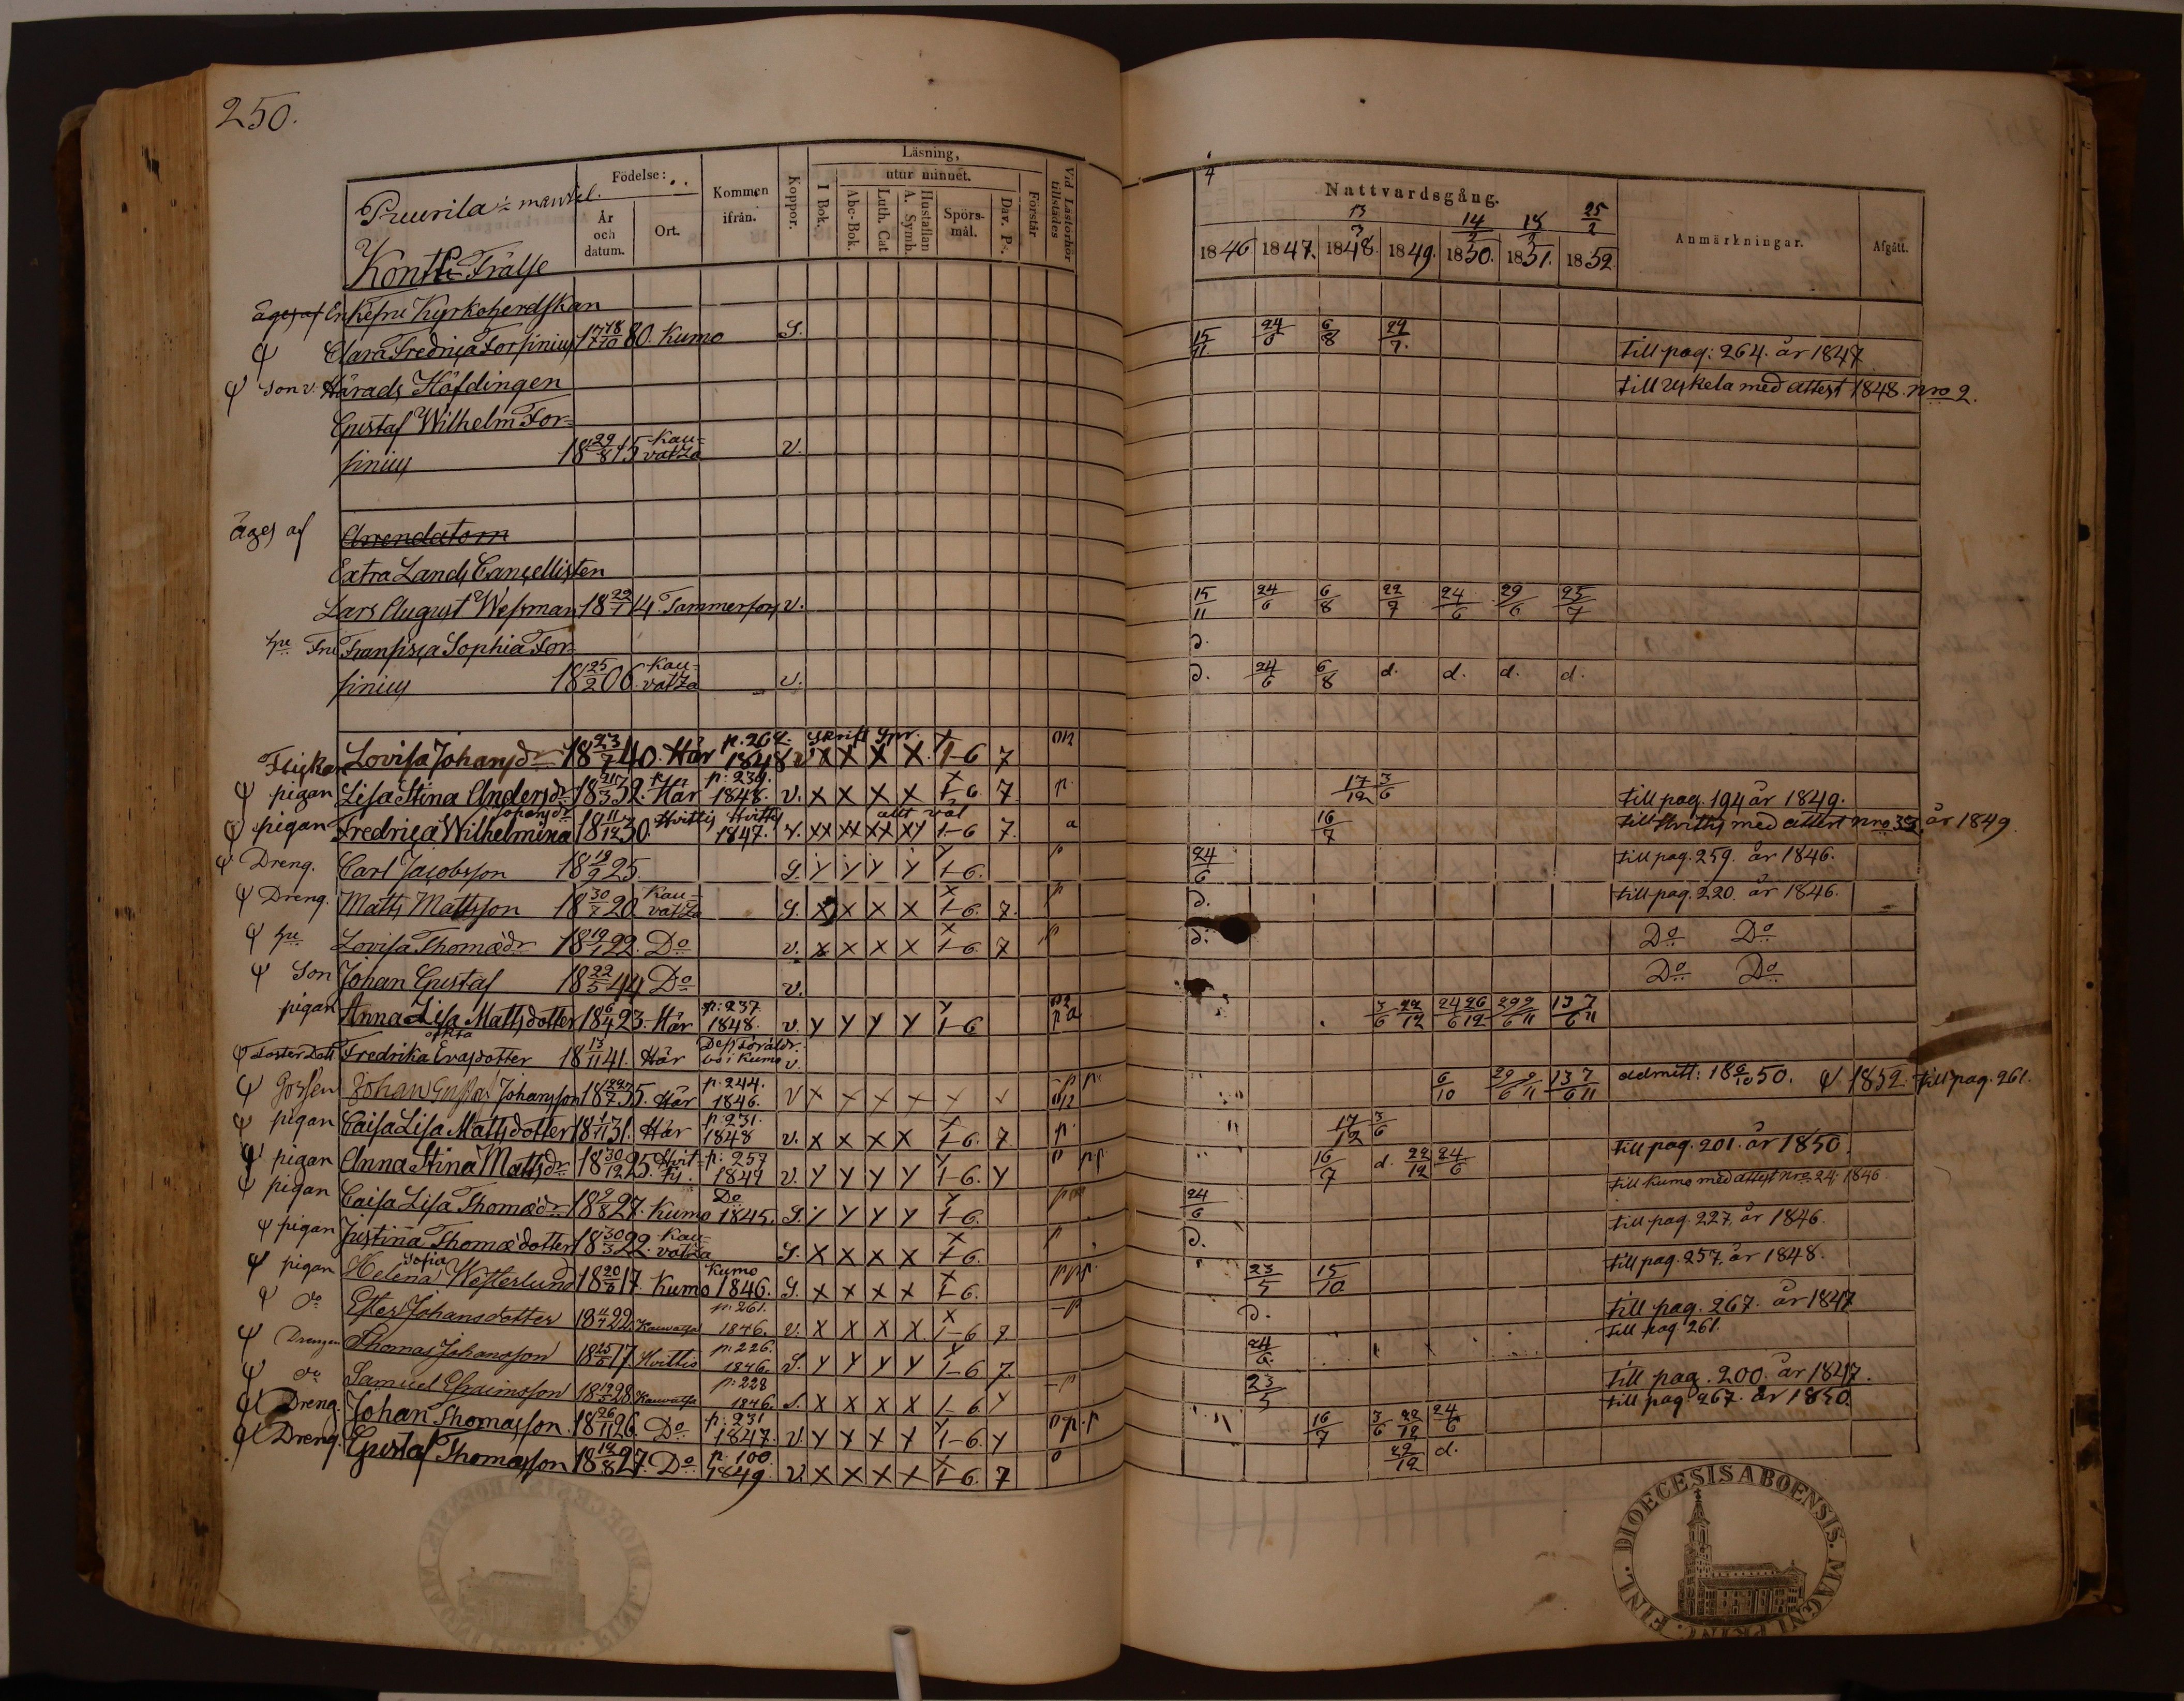 250.
Puurila ½ mantal.
Kontti Frälse
Födelse:
År och datum.
Ort.
Kommen ifrån.
Koppor.
Läsning,
I Bok.
utur minnet.
Abc-Bok.
Luth. Cat
A. Symb.
Hustaflan
Spörsmål.
Dav. Ps.
Förstår
Vid Läsförhör tillstädes
Nattvardsgång.
13/3 14/2 18/2 25/2
1846. 1847. 1848. 1849. 1850. 1851. 1852.
Anmärkningar.
Afgått.
äges af Enkefru Kyrkoherdskan
Clara Fredrica Forsinius 17 18/10 80. Kumo S. 15/11 24/6 6/8 22/7. till pag: 264. år 1847
Son v. Härads Höfdingen till Uskela med attest 1848. nro 2.
Gustaf Wilhelm For=
sinius 18 29/8 15 Kau=vatza v.
äges af Arrendatorn
Extra Lands Cancellisten
Lars August Wessman 18 22/1 14. Tammerfors v. 15/11 24/6 6/8 22/7 24/6 29/6 25/7
hu Fru Fransisca Sophia For= d.
sinius 18 25/2 06. Kau=vatza v. d. 24/6 6/8 d. d. d. d.
Flickan Lovisa Johansdr 18 23/7 40. Här p. 264. 1848 v X X X X 1-6 7
pigan Lisa Stina Andersdr 18 21/3 32. Här p: 239. 1848. v. X X X X 1-6. 7. p. 17/12 3/6 till pag. 194 år 1849.
pigan Fredrica Wilhelmina Johansdr 18 11/12 30. Hvittis Hvittis 1847. allt väl 1-6 7. a 16/7 till Hvittis med attest nro 33. år 1849
Dreng. Carl Jacobsson 18 19/9 25. S. Y Y Y Y 1-6. p 24/6 till pag. 259. år 1846.
Dreng. Matts Mattsson 18 30/8 20. Kau=vatza S. X X X X 1-6. 7. p d. till pag. 220. år 1846.
hu Lovisa Thomædr 18 19/1 22. Do v. X X X X 1-6 7 p d. Do Do
Son Johan Gustaf 18 22/5 44 Do v. Do Do
pigan Anna Lisa Mattsdotter 18 16/4 23. Här p: 237 1848. v. Y Y Y Y 1-6 3/6 22/12 24/6 26/12 29/6 9/11 13/6 7/11
Foster Dott Fredrika Evasdotter oäkta 18 13/11 41. Här Dess föräldr. bo i Kumo v.
Gossen Johan Gustaf Johansson 18 22/7 35. Här p. 244. 1846. V X X X X X 6/10 29/6 9/11 13/6 7/11 admitt: 18 6/10 50. 1852. till pag. 261.
pigan Caisa Lisa Mattsdotter 18 1/11 31. Här p: 231. 1848 v. X X X X 1-6. 7 p. 17/12 3/6 till pag. 201. år 1850.
pigan Anna Stina Mattsdr 18 30/12 25. Hvit=tis. p: 257 1847 v. Y Y Y Y 1-6. Y 16/7 d. 22/12 24/6
pigan Caisa Lisa Thomædr 18 9/8 27. Kumo Do 1845. S. Y Y Y Y 1-6. 24/6 till Kumo med attest nro 24. 1846.
pigan Justina Thomædotter 18 30/3 22. Kau=vatza S. X X X X 1-6. p d. till pag. 227. år 1846.
pigan Helena Sofia Westerlund 18 20/3 17. Kumo Kumo 1846. S. X X X X 1-6. ppp. 23/5 15/10 till pag. 257. år 1848.
do Ester Johansdotter 18 4/4 22. Kauvatsa p: 261. 1846. v. X X X X 1-6 7 -p d. till pag. 267. år 1847
Drengen Thomas Johansson 18 25/6 17. Hvittis p: 226. 1846. S. Y Y Y Y 1-6 7. 24/6. till pag 261.
do Samuel Efraimsson 18 19/5 28. Kauvatsa p: 228 1846. S. X X X X 1-6 Y -p 23/5 till pag. 200. år 1847.
Dreng. Johan Thomasson. 18 26/11 26. Do p: 231 1847. v. Y Y X Y 1-6. Y ppp 16/7 3/6 22/12 24/6 till pag 267. år 1850.
Dreng. Gustaf Thomasson 18 19/8 27. Do p: 100. 1849 v. X X X X 1-6. 7 22/12 d.
DIOECESIS ABOENSIS. MAGNI PRINC. FINL.